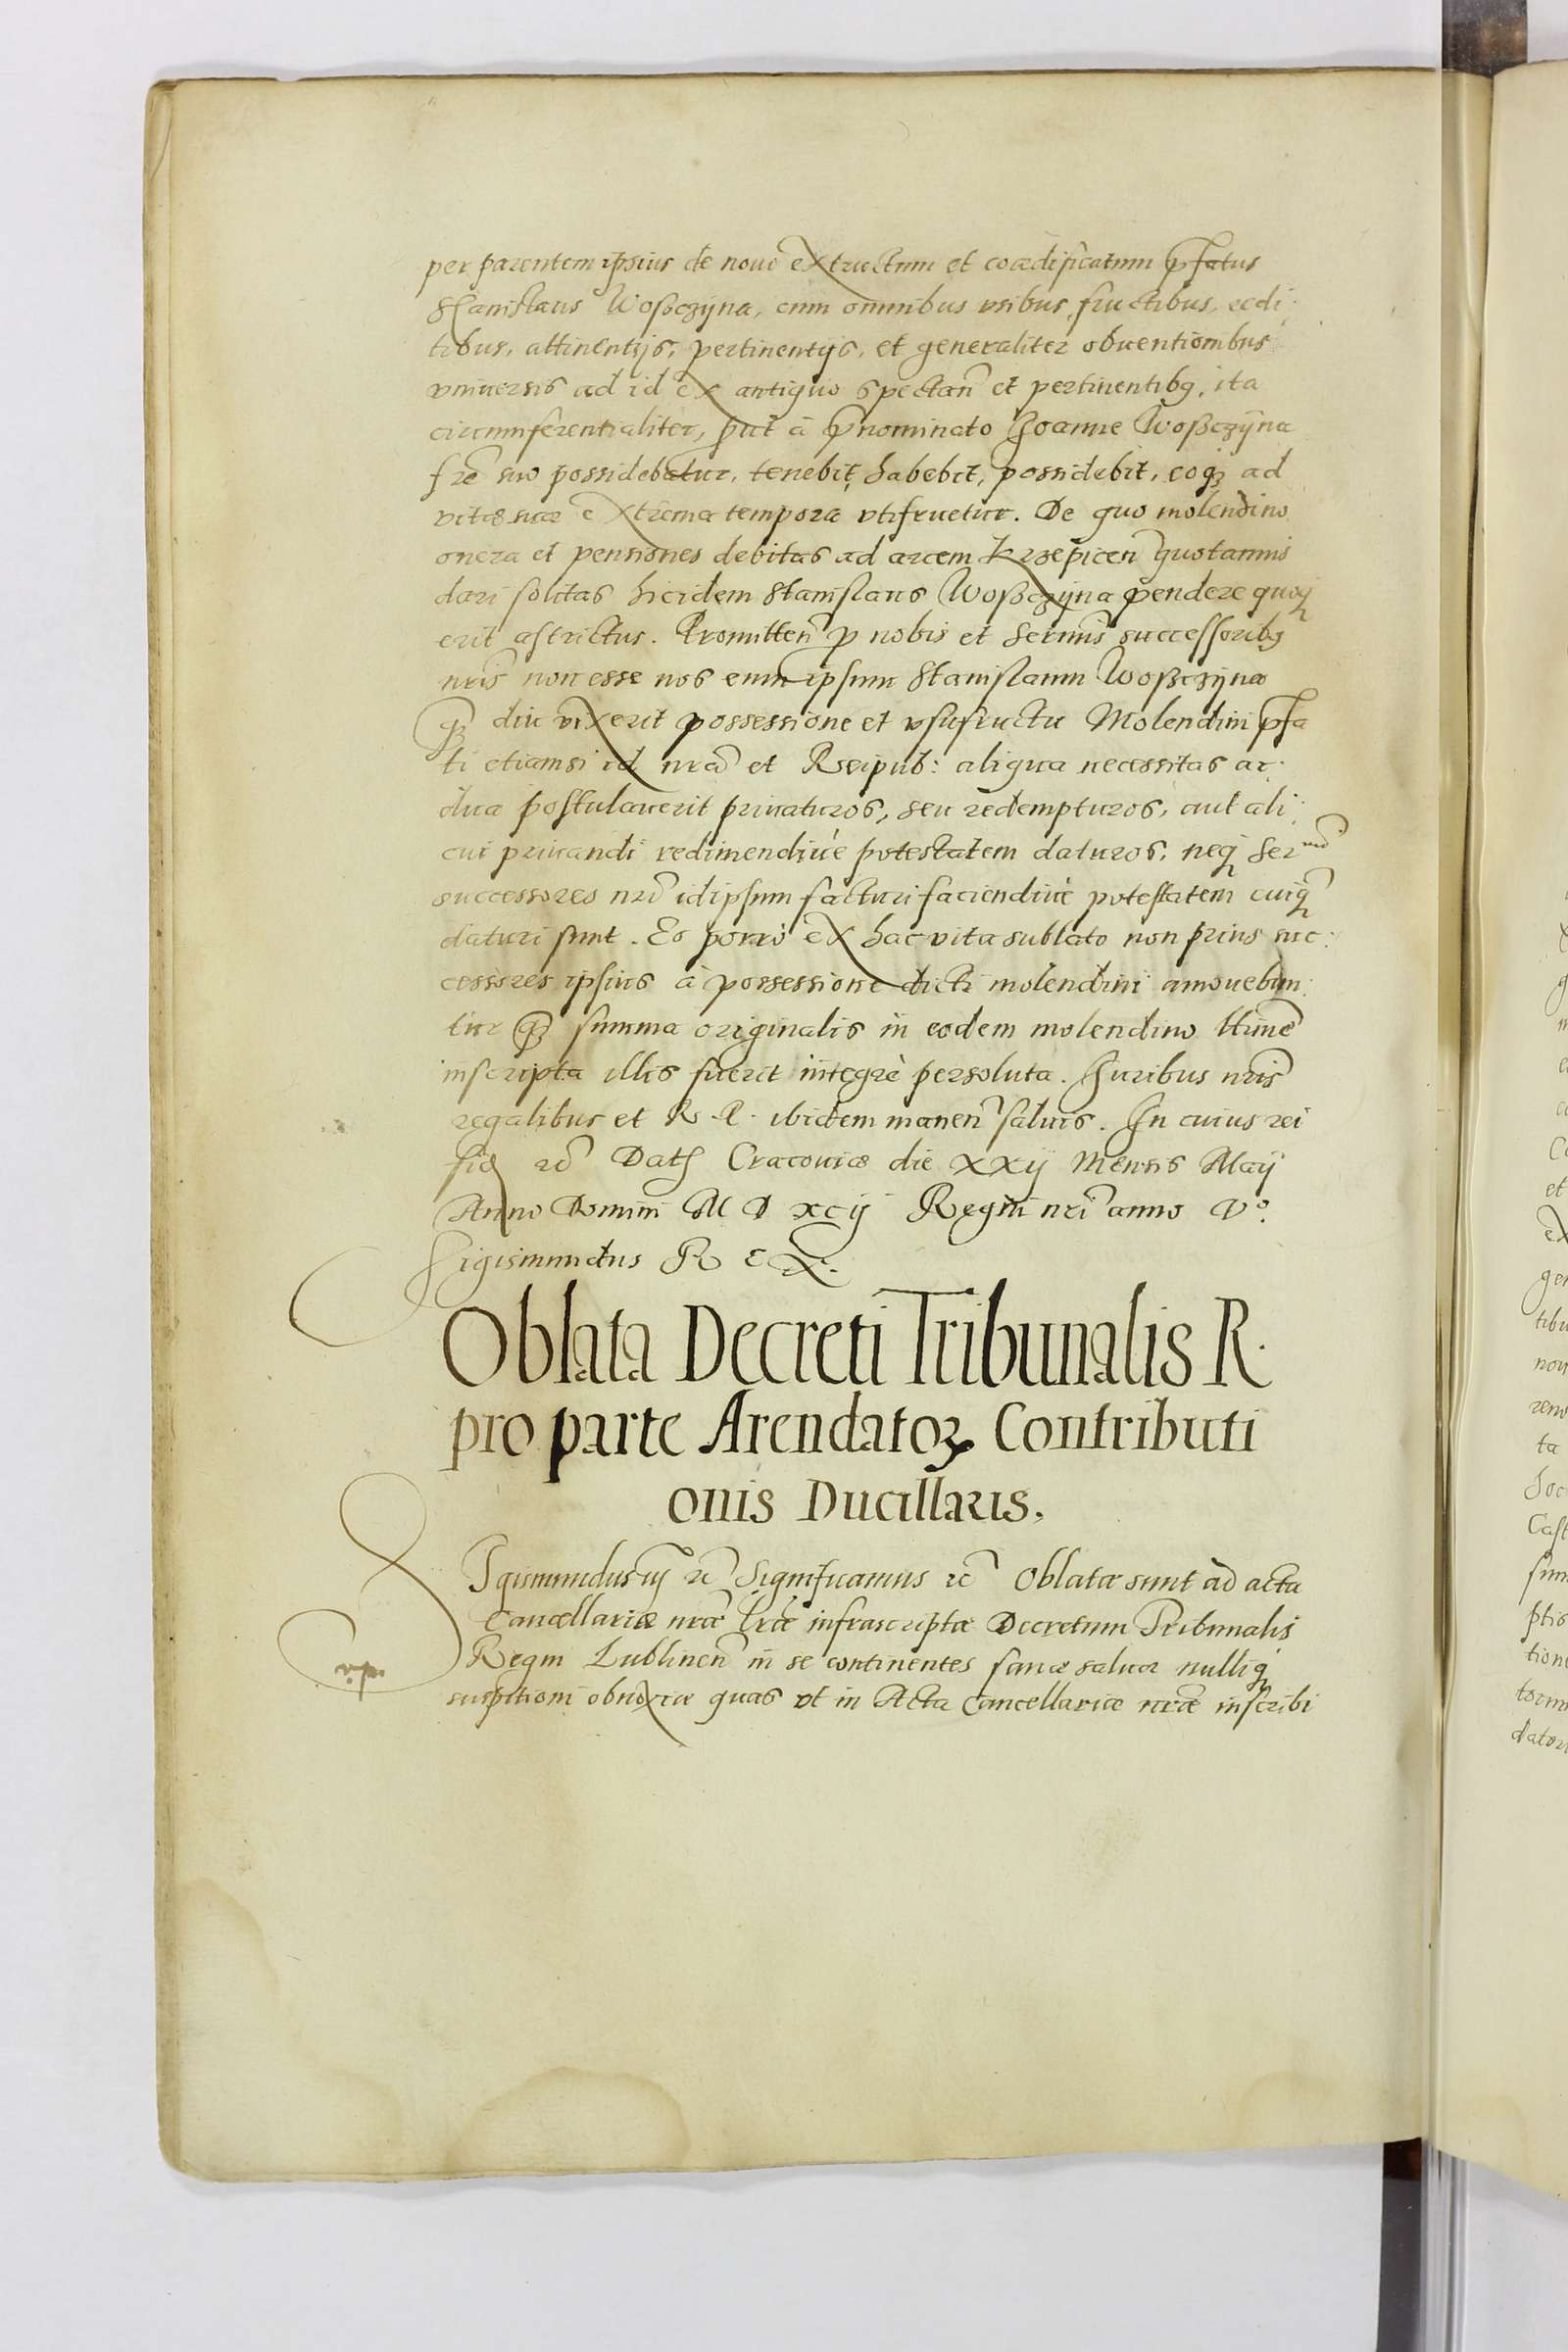 per parentem ipsius de nouo extructum et coædificatum p̃fatus
Stanislaus Woßczyna, cum omnibus vsibus, fructibus, ecdi
tibus, attinentijs, pertinentijs, et generaliter obuentionibus
vniuersis ad id ex antiquo spectañ et pertinentibq, ita
circumferentialiter, put à p̃nominato Joanne Woßczyna
fr̃e suo possidebatur, tenebit, habebit, possidebit, eoq ad
vitæ suæ extrema tempora vtifruetur. De quo molendino
onera et pensiones debitas ad arcem Krzepiceñ quotannis
dari solitas hicidem Stanislaus Woßczyna pendere quoq
erit astrictus. Promitteñ p nobis et Sermis successoribq
nris̃ non esse nos eum ipsum Stanislaum Woßczyna
q̃ diu vixerit possessione et vsufructu Molendini p̃fa
ti etiamsi id nrã et Reipub: aliqua necessitas ar
dua postulauerit priuaturos, seu redempturos, aut ali
cui priuandi redimendiuè potestatem daturos, neq Sermi
successores nrĩ idipsum facturi faciendiuè potestatem cuiq
daturi sunt. Eo porrò ex hac vita sublato non prius suc:
cessores ipsius à possessione dicti molendini amouebun:
tur q̃ summa originalis in eodem molendino ltimẽ
inscripta illis fuerit integrè persoluta. Juribus nris̃
regalibus et R. P. ibidem maneñ saluis. In cuius rei
fid̃ rc̃ Dat̃ Cracouiæ die xxij Mensis Maij
Anno Domini M D xcij Regni nrĩ anno Vº.
Sigismundus R Ex.
Oblata Decreti Tribunalis R.
pro parte Arendatoꝝ Contributi
onis Ducillaris.
SIgismundus iij rc̃ Significamus rc̃ Oblatæ sunt ad acta
Cancellariæ nræ lræ infrascriptæ Decretum Tribunalis
Regni Lublineñ in se continentes sanæ saluæ nulliq
suspitioni obnoxiæ quas vt in Acta Cancellariæ nræ inscribi